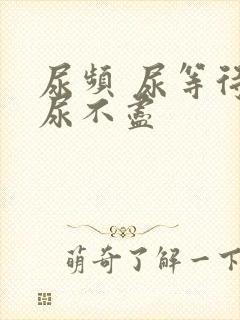 尿頻 尿等待
尿不盡
萌奇了解一下